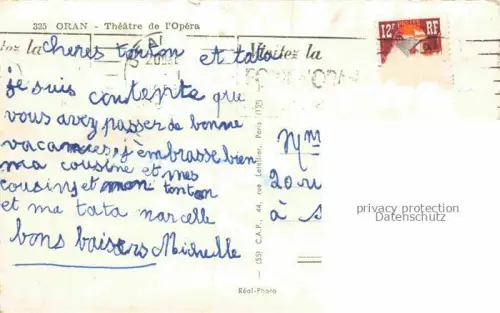 325 ORAN - Théâtre de l'Opéra
Visitez la
12F POSTES RF
cheres tonton et tata
je suis contente que
vous avez passer de bonne
vacances, j'embrasse bien
ma cousine et mes
cousins et mon tonton
et ma tata marcelle
bons baisers Micheille
Mm
20 ru
à s
(55) C.A.P., 44, rue Letellier, Paris (15e)
Réal-Photo
privacy protection
Datenschutz